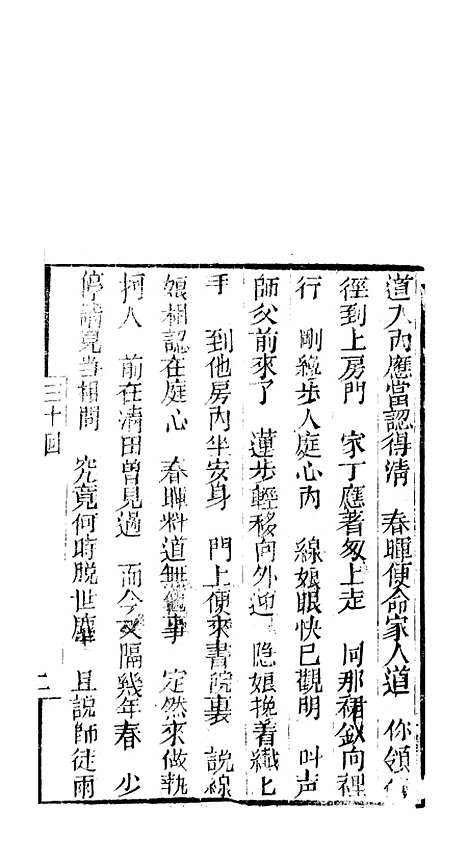 道大內應當認得清　春暉便命家人道　你領
徑到上房門　家丁應著匆匆走　同那裙釵向裡
行　剛纔步人庭心內　線娘眼快已觀明　叫声
師父前來了　蓮步輕移向外迎　隐娘挽着纖纖
手　到他房內坐安身　門上便來書院裏　說線
娘相認在庭心　春暉料道無他事　定然來做執
柯人　前在清田曾見過　而今又隔幾年春　少
停請見當相問　究竟何時脱世塵　且說師徒兩
三十回
二